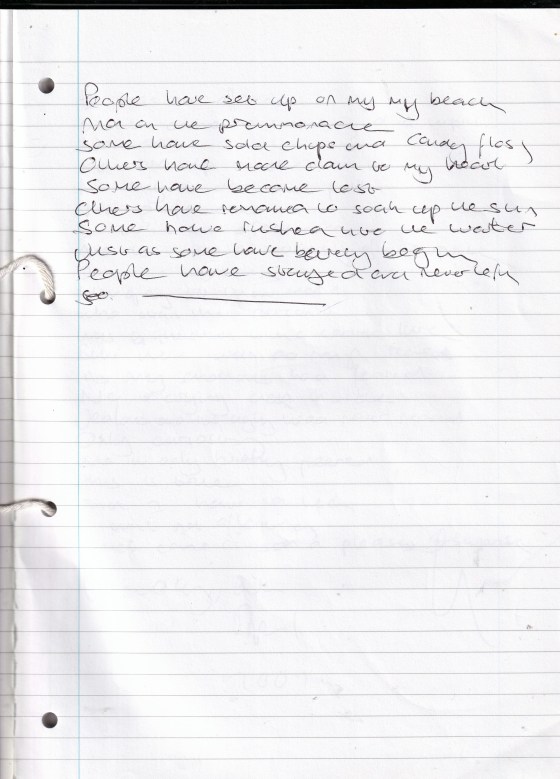 People have set up on my my beach
on the promenade
Some have sold chips and candy floss
Others have made claim to my heart
Some have become lost
Others have remained to soak up the sun
Some have rushed into the water
Just as some have barely begun
People have stayed and never left